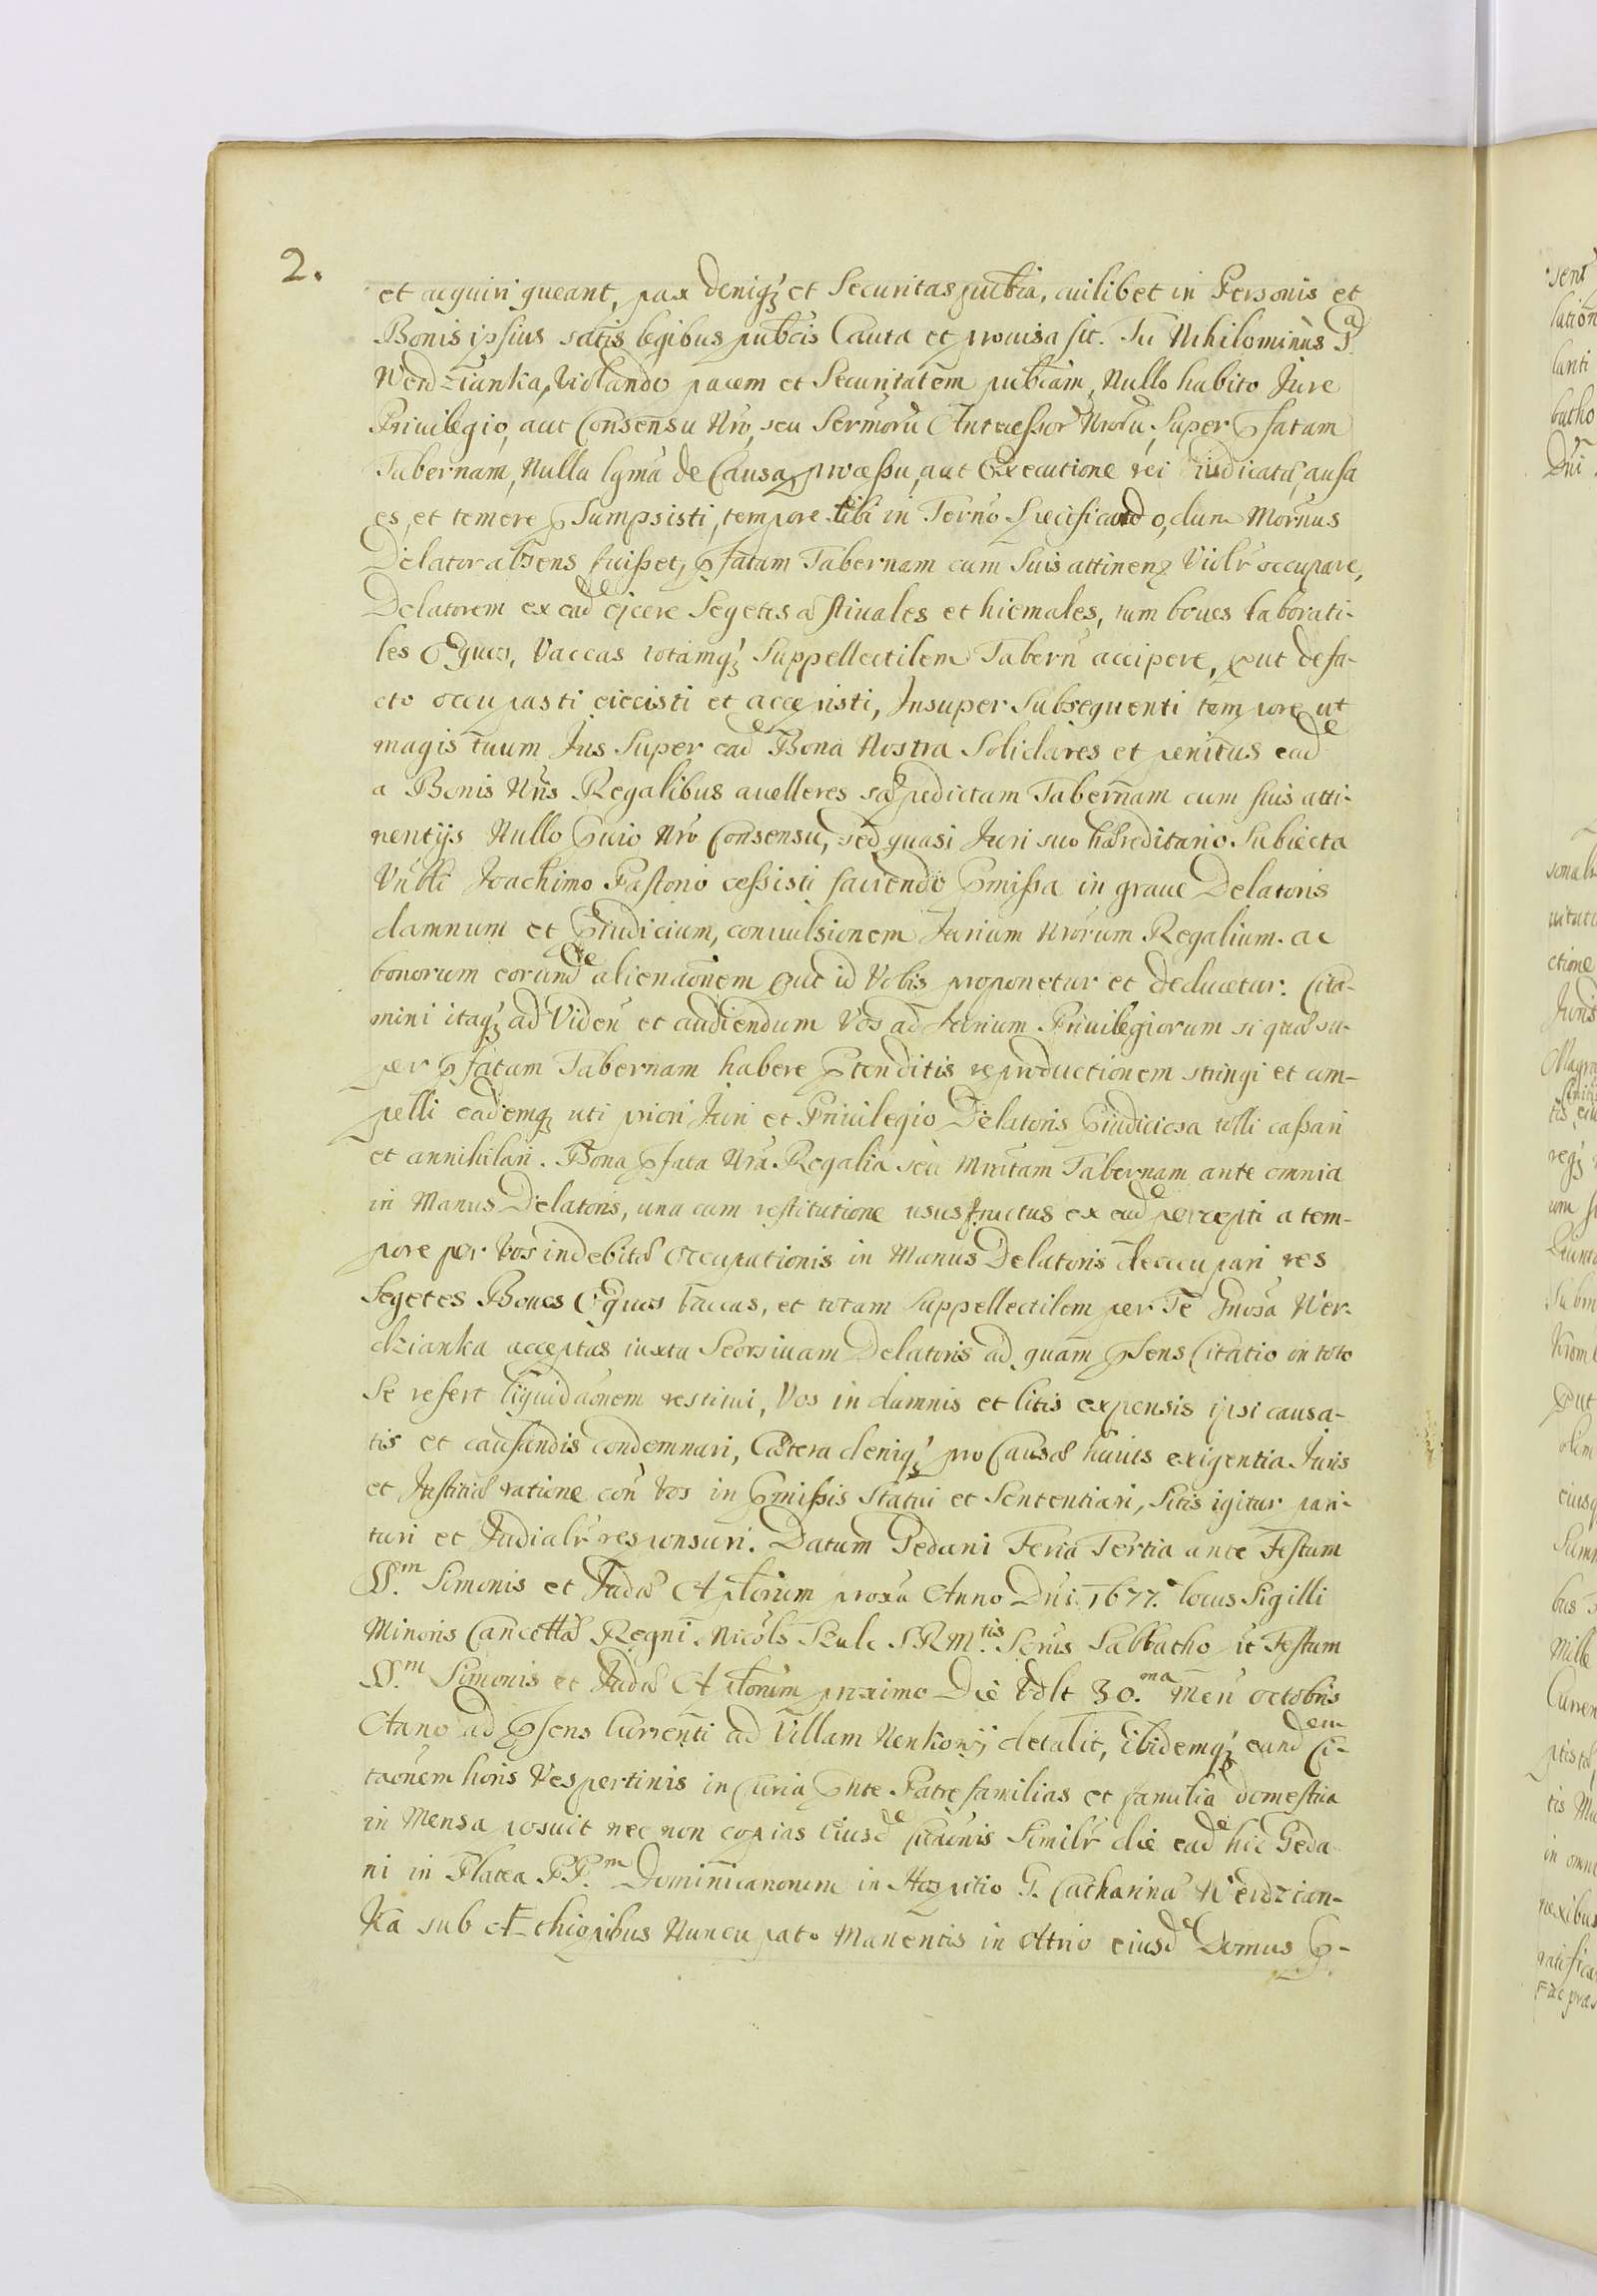 2.
et acquiri queant, pax deniq3 et Securitas publica, cuilibet in Personis et
Bonis ipsius satis legibus pubcis Cauta et prouisa sit. Tu Nihilominus G.
Werdzianka, Violando pacem et Securitatem pubcam, Nullo habito Jure
Priuilegio, aut Consensu Nro, seu Sermoru Antecessor Nroru, Super pfatam
Tabernam, Nulla lgma de Causa, processu, aut Executione rei iudicatæ, ausa
es, et temere psumpsisti, tempore tibi in Terno Specificando, dum Mornus
Delator absens fuisset, pfatam Tabernam cum Suis attinen3 Violr occupare,
Delatorem ex eade ejcere Segetes æstiuales et hiemales, tum boues laborati-
les Equos, Vaccas totamq3 Suppellectilem Tabern accipere, put de fa-
cto occupasti eiecisti et accepisti, Insuper Subsequenti tempore ut
magis tuum Jus Super eade Bona Nostra Solidares et penitus eade
a Bonis Nris Regalibus auelleres sæpedictam Tabernam cum suis atti-
nentijs Nullo puio Nro Consensu, sed quasi Juri suo hæreditario Subiecta
Vrbli Joachimo Pastorio cessisti faciendo pmissa in graue Delatoris
damnum et piudicium, conuulsionem Jurium Nrorum Regalium ac
bonorum eorunde alienaonem put id Vobis proponetur et deducetur. Cita-
mini itaq3 ad Viden et audiendum Vos ad Jurium Priuilegiorum si quæ su-
per pfatam Tabernam habere ptenditis reproductionem stringi et com-
pelli eademq3 uti priori Juri et Priuilegio Delatoris piudiciosa tolli cassari
et annihilari. Bona pfata Nra Regalia seu Mnitam Tabernam ante omnia
in Manus Delatoris, una cum restitutione ususfructus ex eade percepti a tem-
pore per Vos indebitæ occupationis in Manus Delatoris deoccupari res
Segetes Boues Equos Vaccas, et totam Suppellectilem per Te Gnosa Wer-
dzianka acceptas iuxta Seorsiuam Delatoris ad quam psens Citatio in toto
Se refert liquidaonem restitui, Vos in damnis et litis expensis ipsi causa-
tis et causandis condemnari, Cætera deniq3 pro Causæ huius exigentia Juris
et Justitiæ ratione con Vos in pmissis statui et Sententiari, Sitis igitur pari-
turi et Judialr responsuri. Datum Gedani Feria Tertia ante Festum
SS.m Simonis et Judæ Aplorum proxa Anno Dni. 1677. locus Sigilli
Minoris Cancellæ Regni. Nicols Szulc SRM.tis Seruus Sabbatho ut Festum
SS.m Simonis et Judæ Aplorum proximo Die Vdlt 30.ma Men octobris
Anno ad psens Currenti ad Villam Nenkowij detulit, ibidemq3 eandem Ci-
taonem horis Vespertinis in Curia pnte Patrefamilias et familia domestica
in Mensa posuit nec non copias Eiusde Citaonis Similr die eade hic Geda-
ni in Platea PP.m Dominicanorum in Hospitio G. Catharinæ Werdzian-
ka sub Æthiopibus Nuncupato Manentis in Atrio eiusde Domus p-